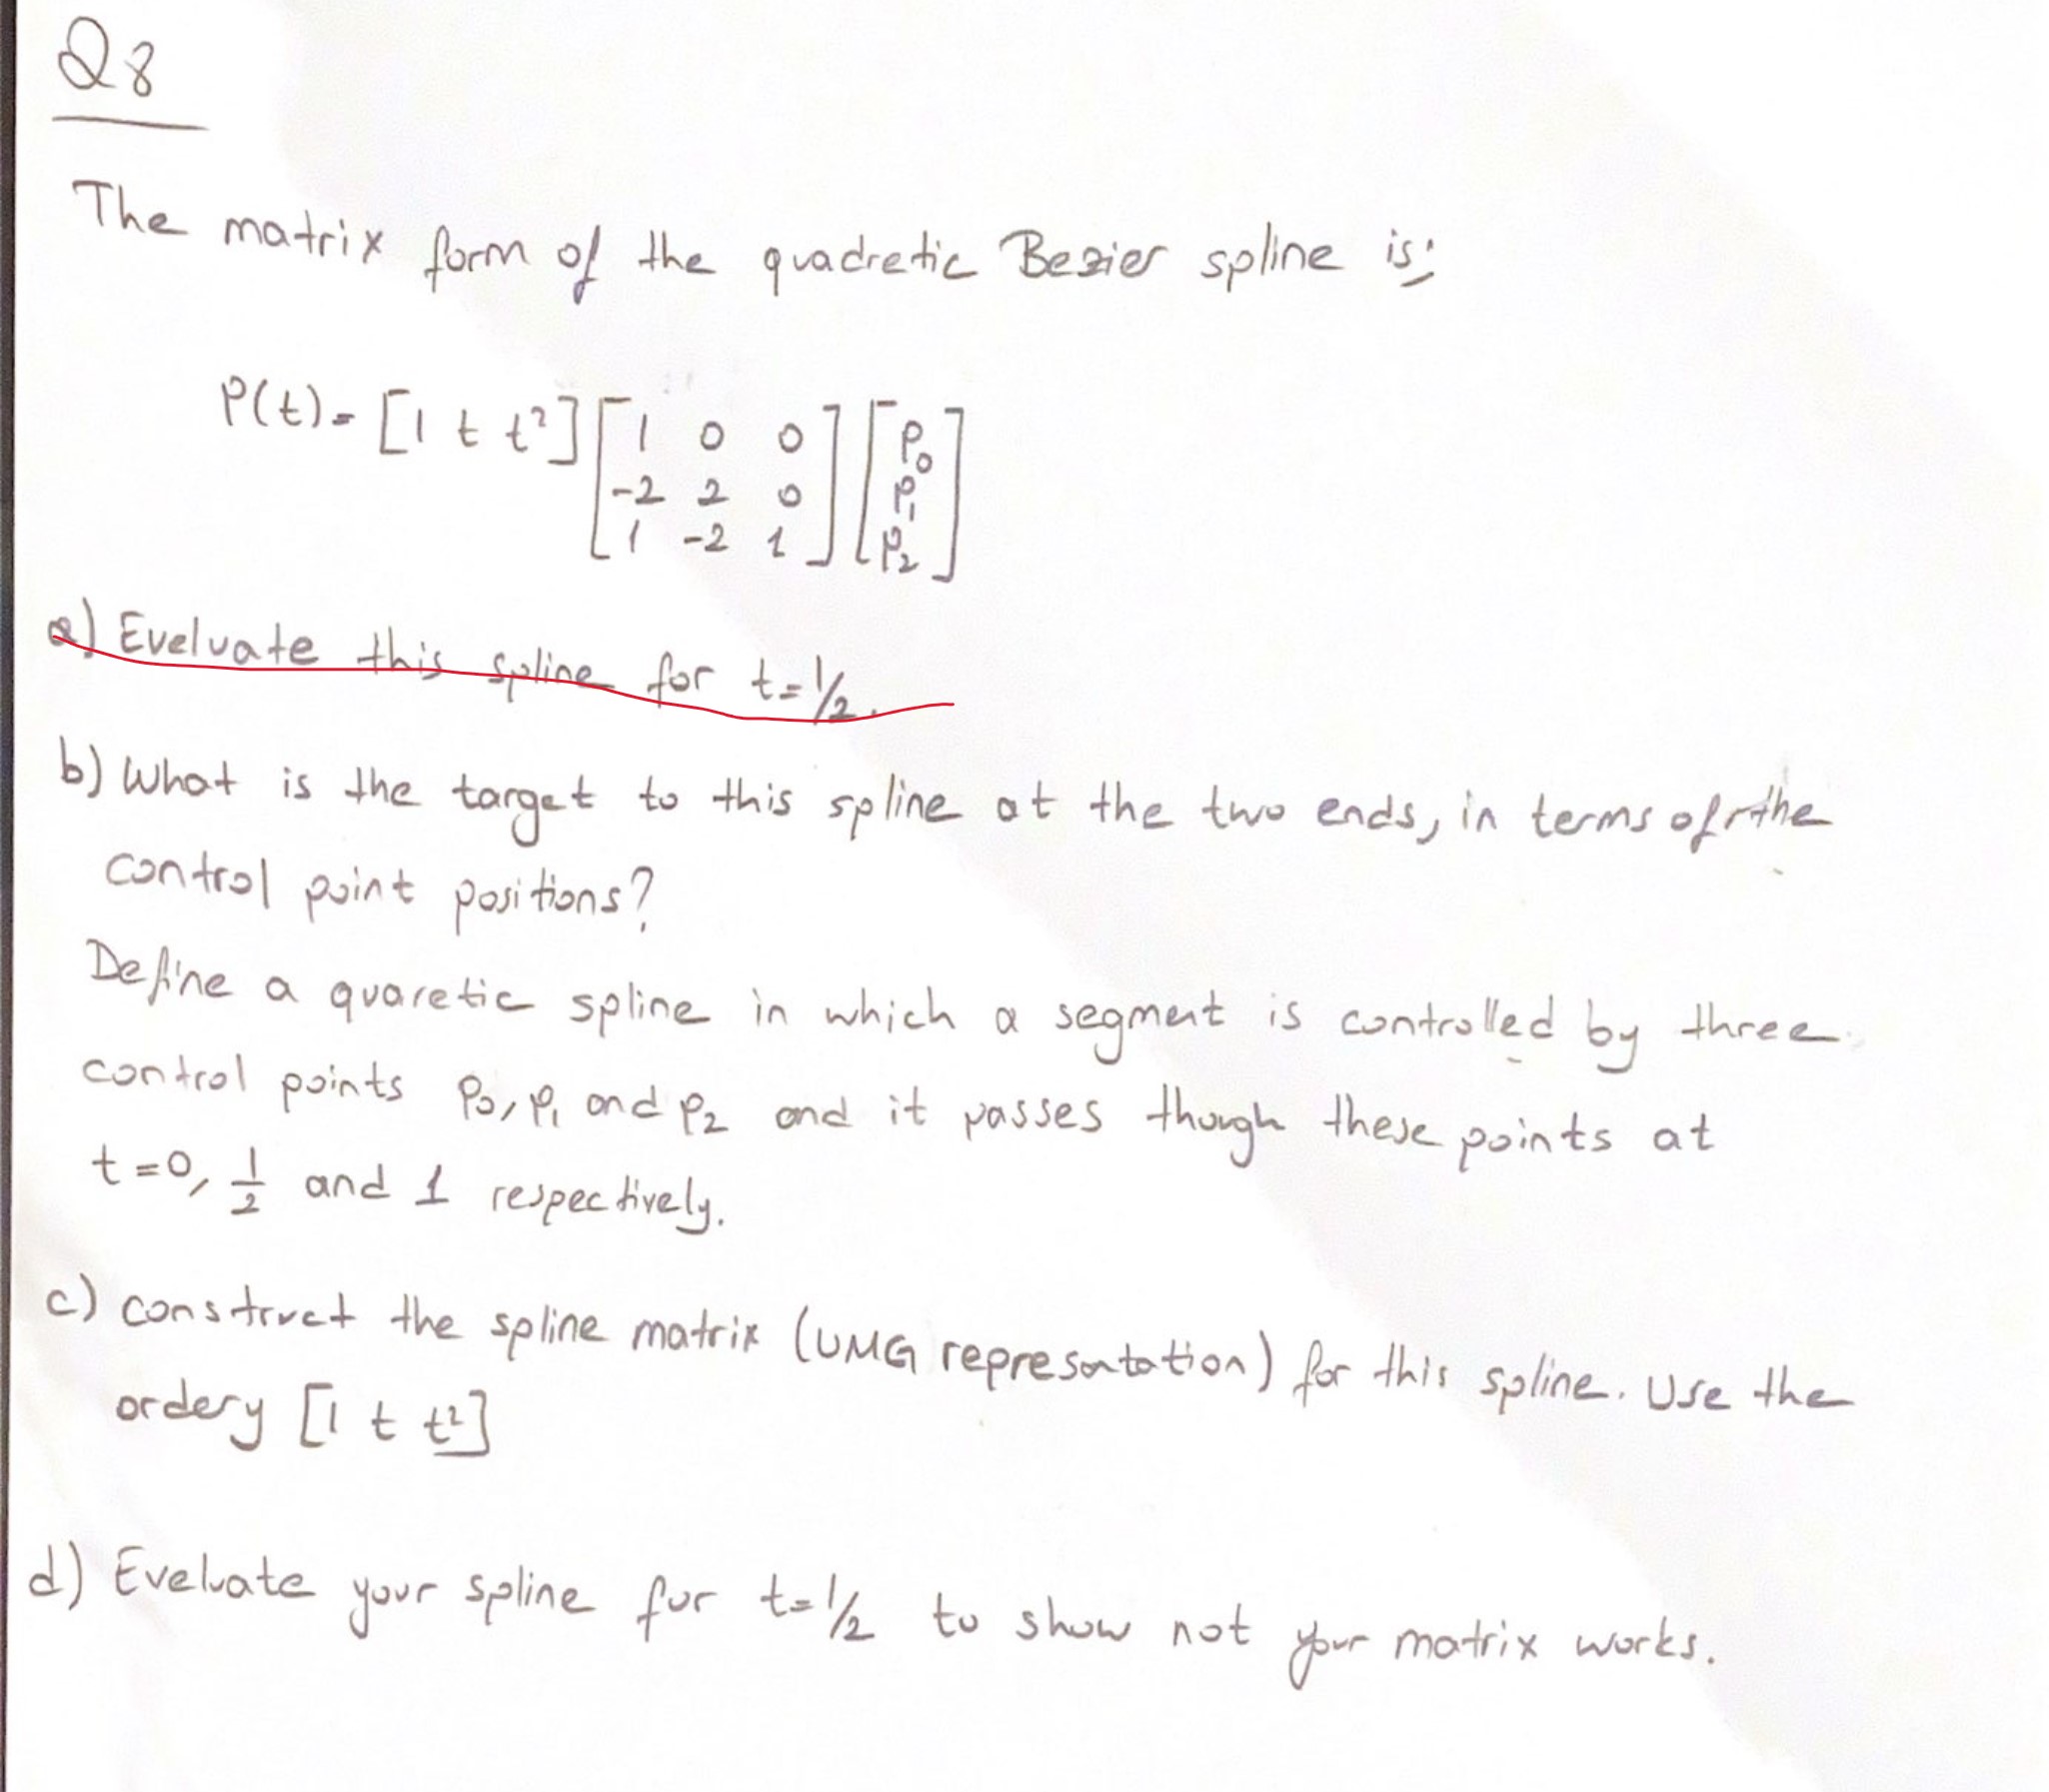 Q8
The matrix form of the quadretic Bezier spline is:
P(t) = [1 t t²] [1 0 0] [P0]
[-2 2 0] [P1]
[1 -2 1] [P2]
a) Eveluate this spline for t=1/2.
b) What is the target to this spline at the two ends, in terms of the
control point positions?
Define a quaretic spline in which a segment is controlled by three
control points P0, P1 and P2 and it passes though these points at
t=0, 1/2 and 1 respectively.
c) construct the spline matrix (UMG represontation) for this spline. Use the
ordery [1 t t²]
d) Eveluate your spline for t=1/2 to show not your matrix works.